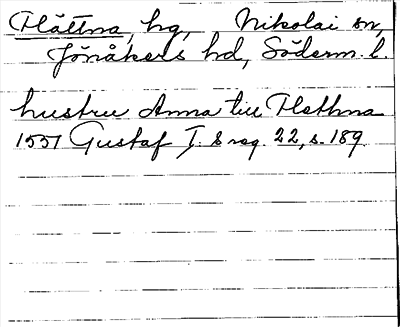 Hättna, hg, Nikolai sn,
Jönåkers hd, Söderm. l.
hustru Anna till Hethna
1551 Gustaf I:s reg. 22, s. 189